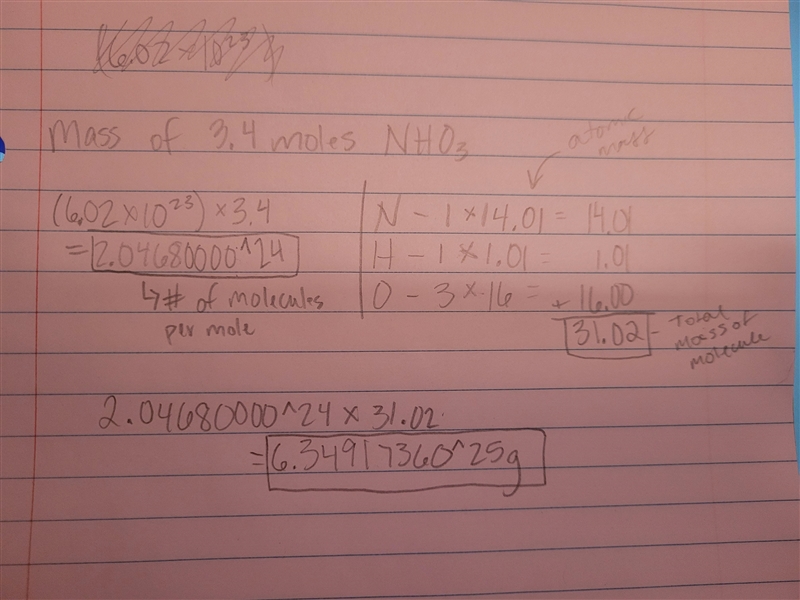 (6.02 x 10²³)
Mass of 3.4 moles NHO₃
atomic
mass
(6.02 x 10²³) x 3.4
= 2.04680000^24
↳ # of molecules
per mole
N - 1 x 14.01 = 14.01
H - 1 x 1.01 = 1.01
O - 3 x 16 = + 16.00
31.02 - Total
mass of
molecule
2.04680000^24 x 31.02
= 6.34917360^25g